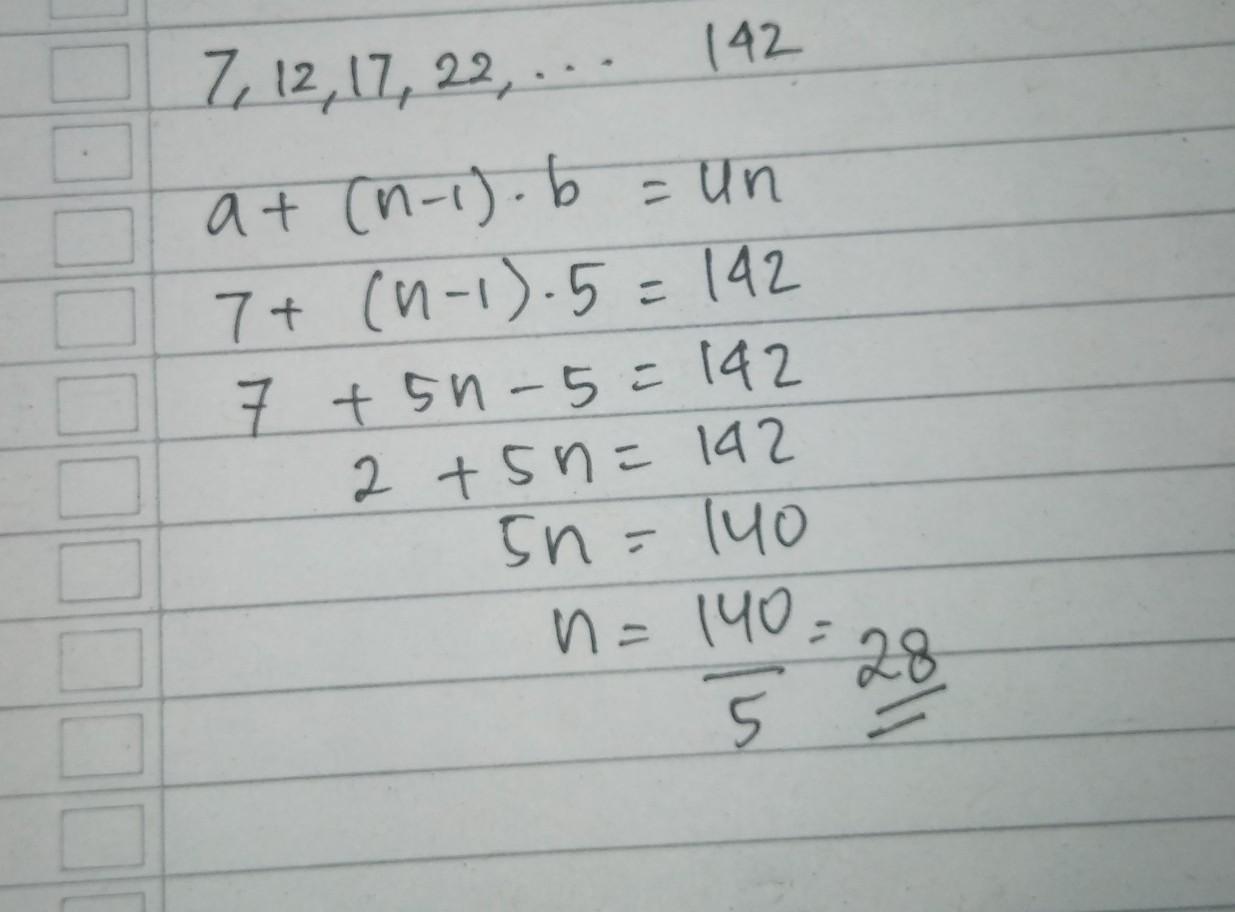 7, 12, 17, 22, ... 142
a + (n-1) . b = Un
7 + (n-1) . 5 = 142
7 + 5n - 5 = 142
2 + 5n = 142
5n = 140
n = 140 = 28
5